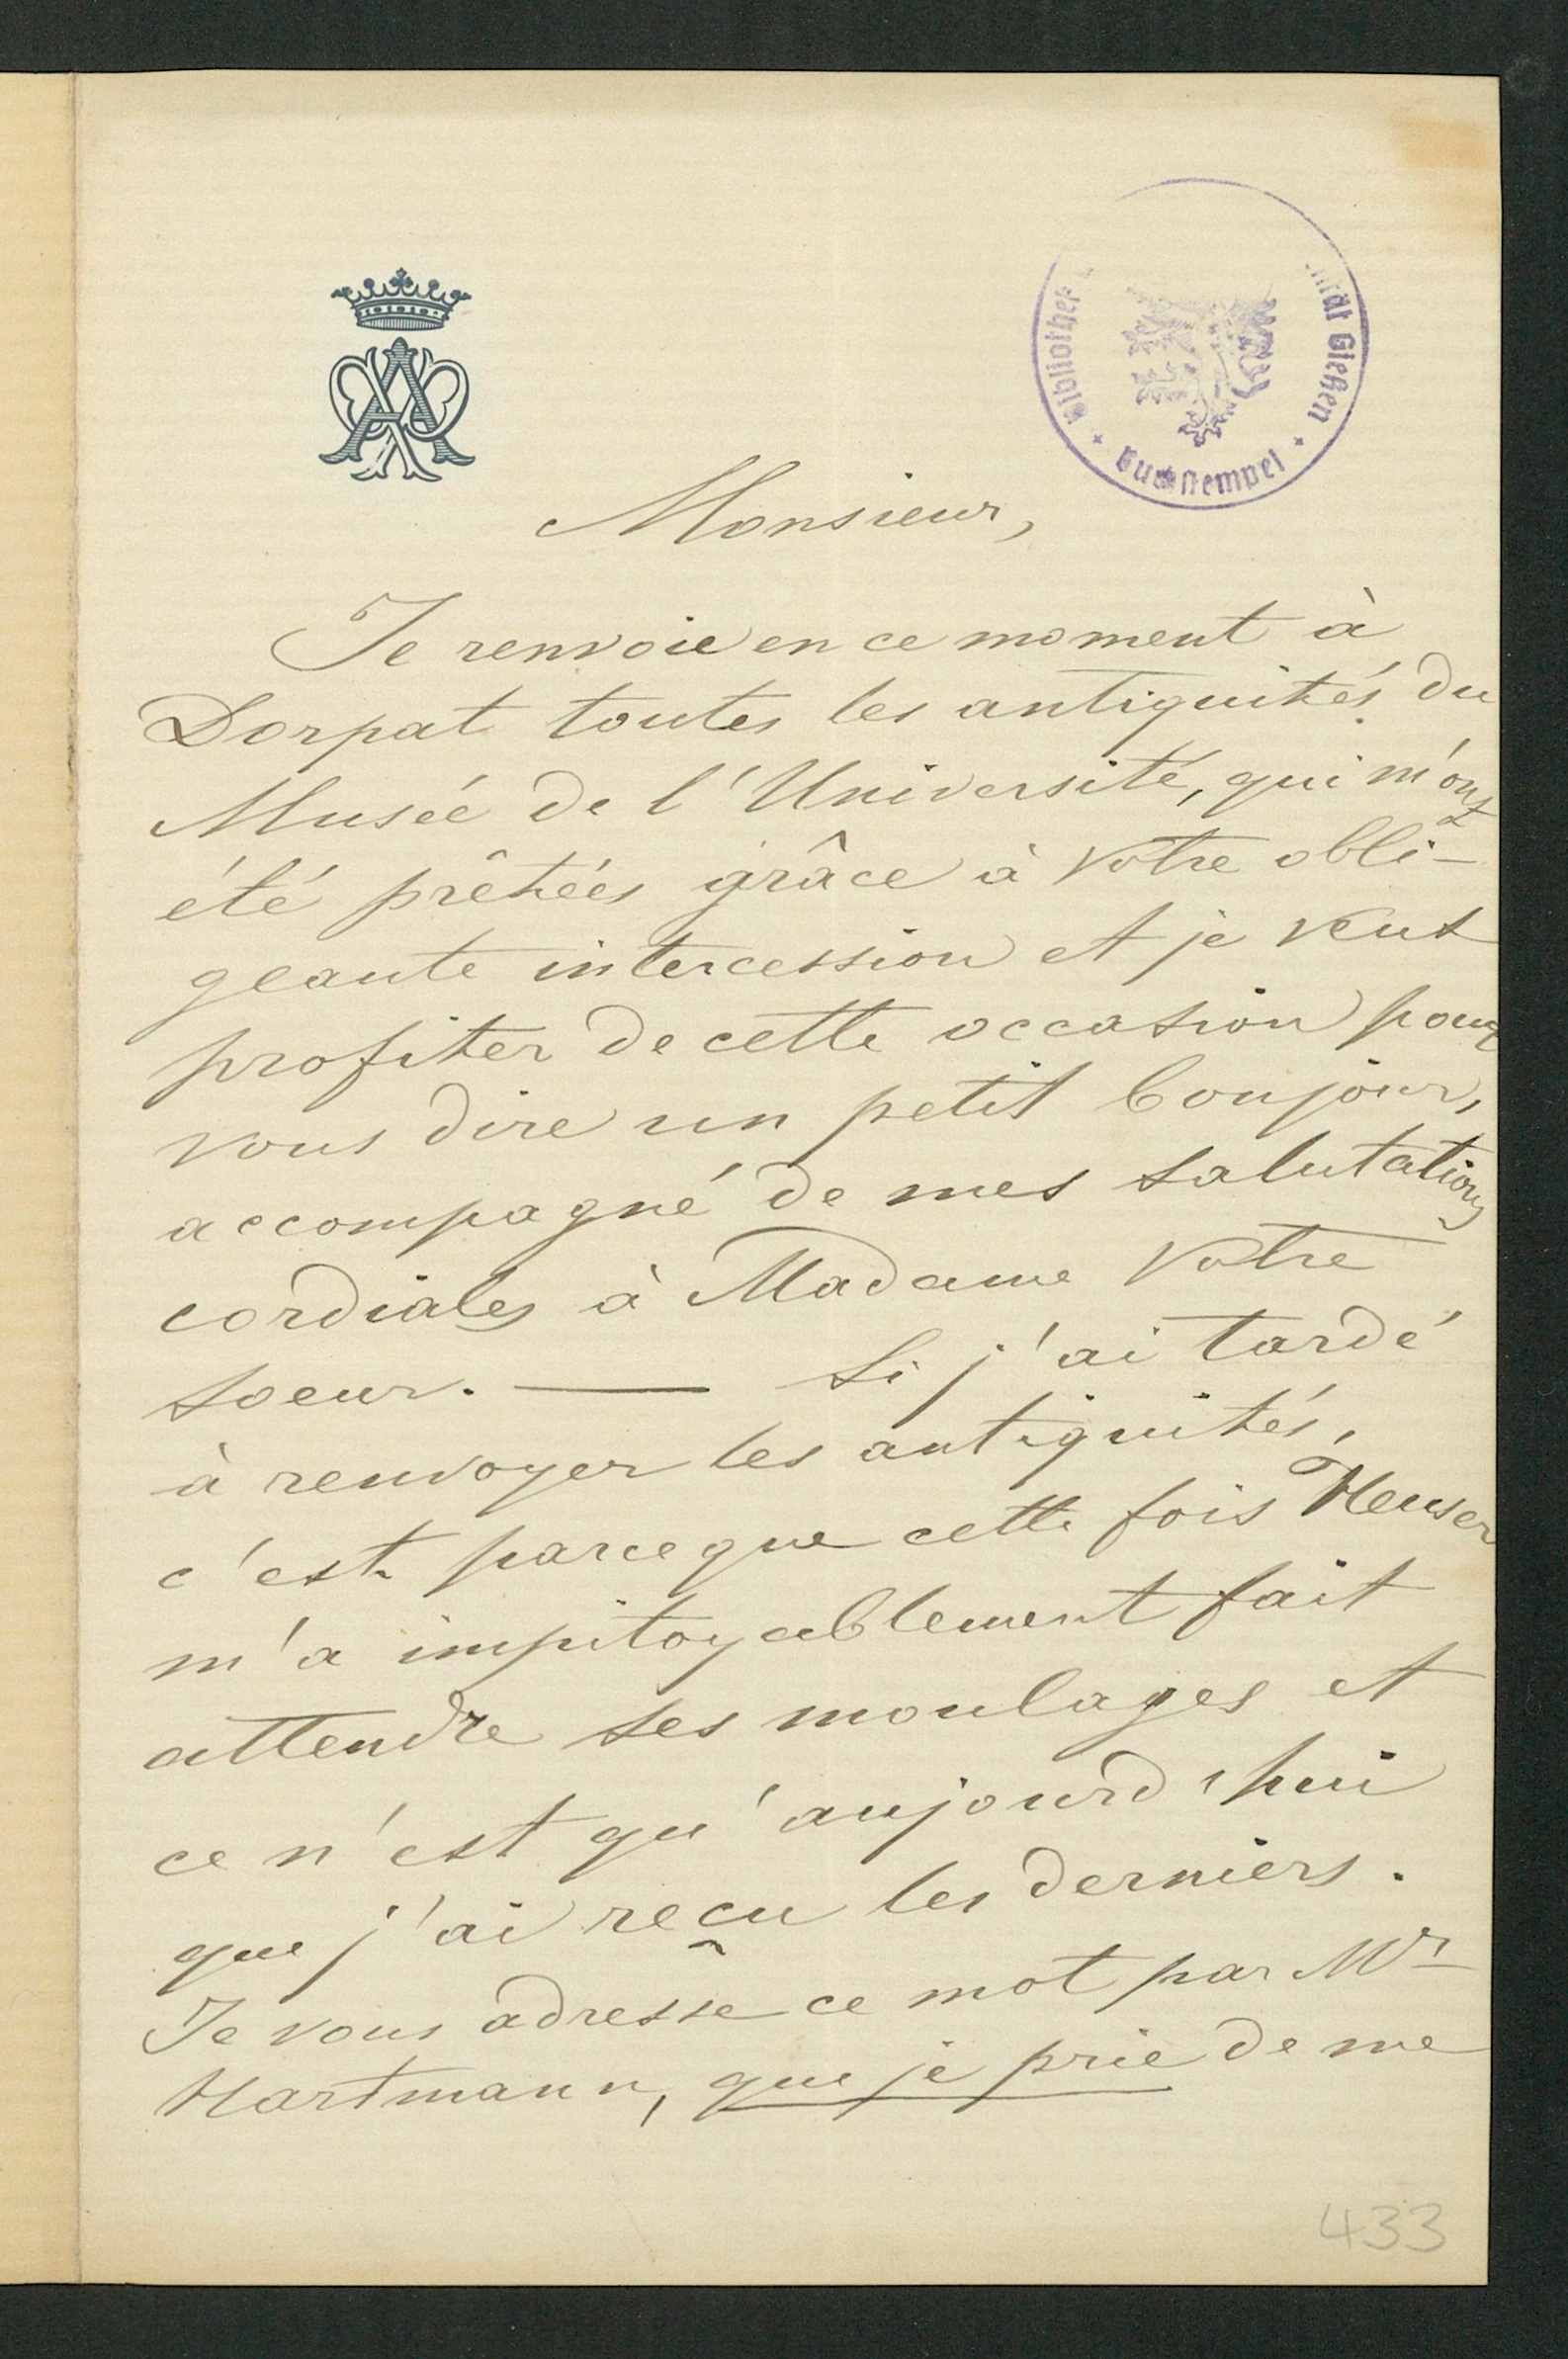 Bibliothek
ität Gießen
Buchstempel
Monsieur,
Je renvoie en ce moment à
Dorpat toutes les antiquités du
Musée de l'Université, qui m'ont
été prêtées grâce à votre obli-
geante intercession et je veux
profiter de cette occasion pour
vous dire un petit bonjour,
accompagné de mes salutations
cordiales à Madame votre
soeur. — Si j'ai tardé
à renvoyer les antiquités,
c'est parceque cette fois Heuser
m'a impitoyablement fait
attendre ses moulages et
ce n'est qu'aujourd'hui
que j'ai reçu les derniers.
Je vous adresse ce mot par Mr
Hartmann, que je prie de me
433